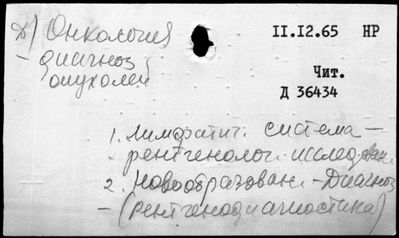 Д) Онкология
II.I2.65 НР
- диагноз
опухолей
Чит.
Д 36434
1. Лимфатич. система -
рентгенолог. исследован.
2. Новообразован. - Диагноз
- (рентгенодиагностика)